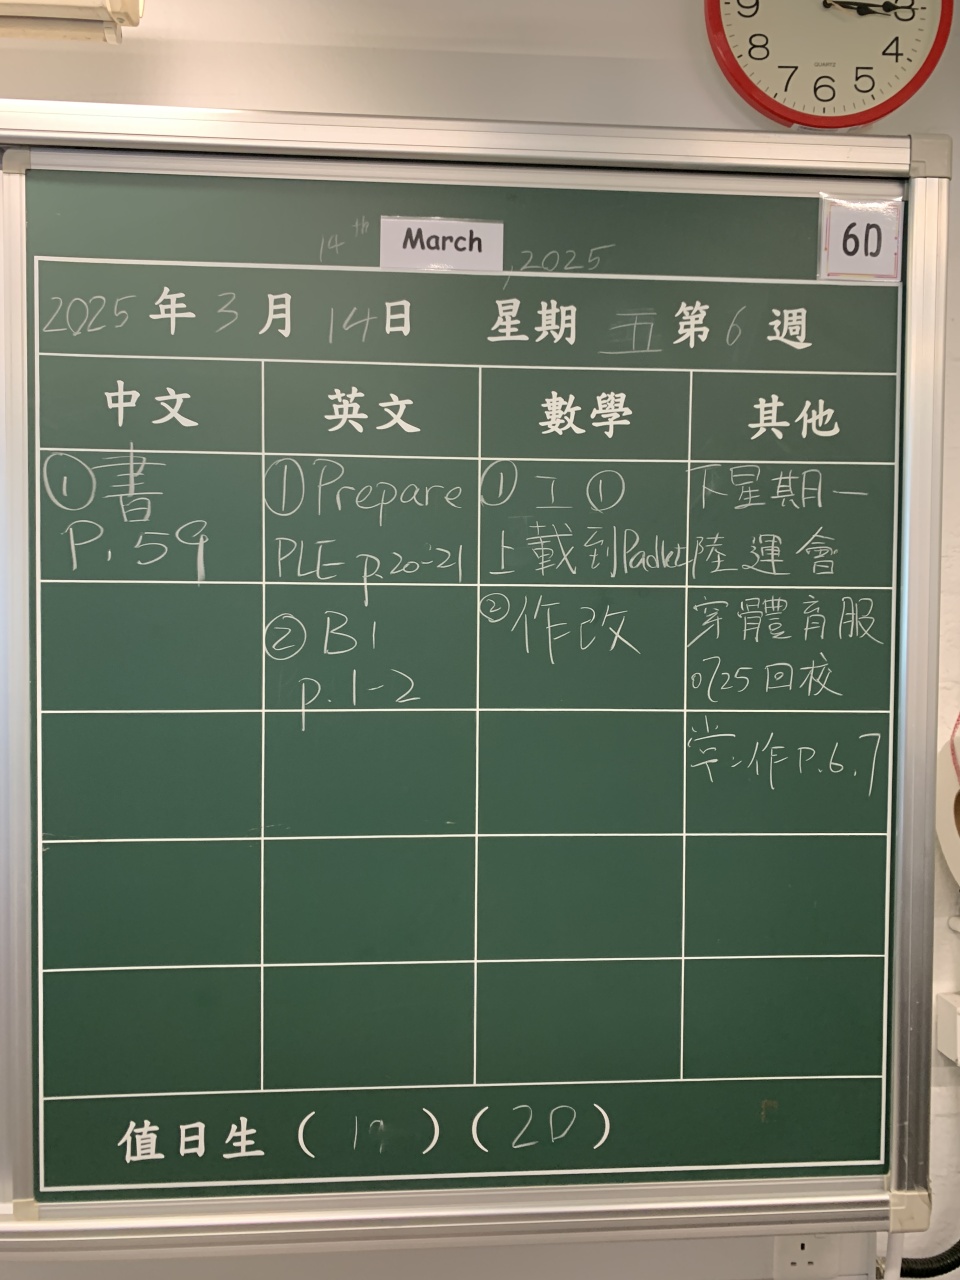 9 3
8 4
7 6 5
QUARTZ
14th March, 2025
6D
2025年3月14日 星期五第6週
中文 英文 數學 其他
①書
P. 59
①Prepare
PLE p.20-21
①工①
上載到Padlet
下星期一
陸運會
②B1
p.1-2
②作改
穿體育服
0725回校
常:作P.6.7
值日生( 19 )( 20 )